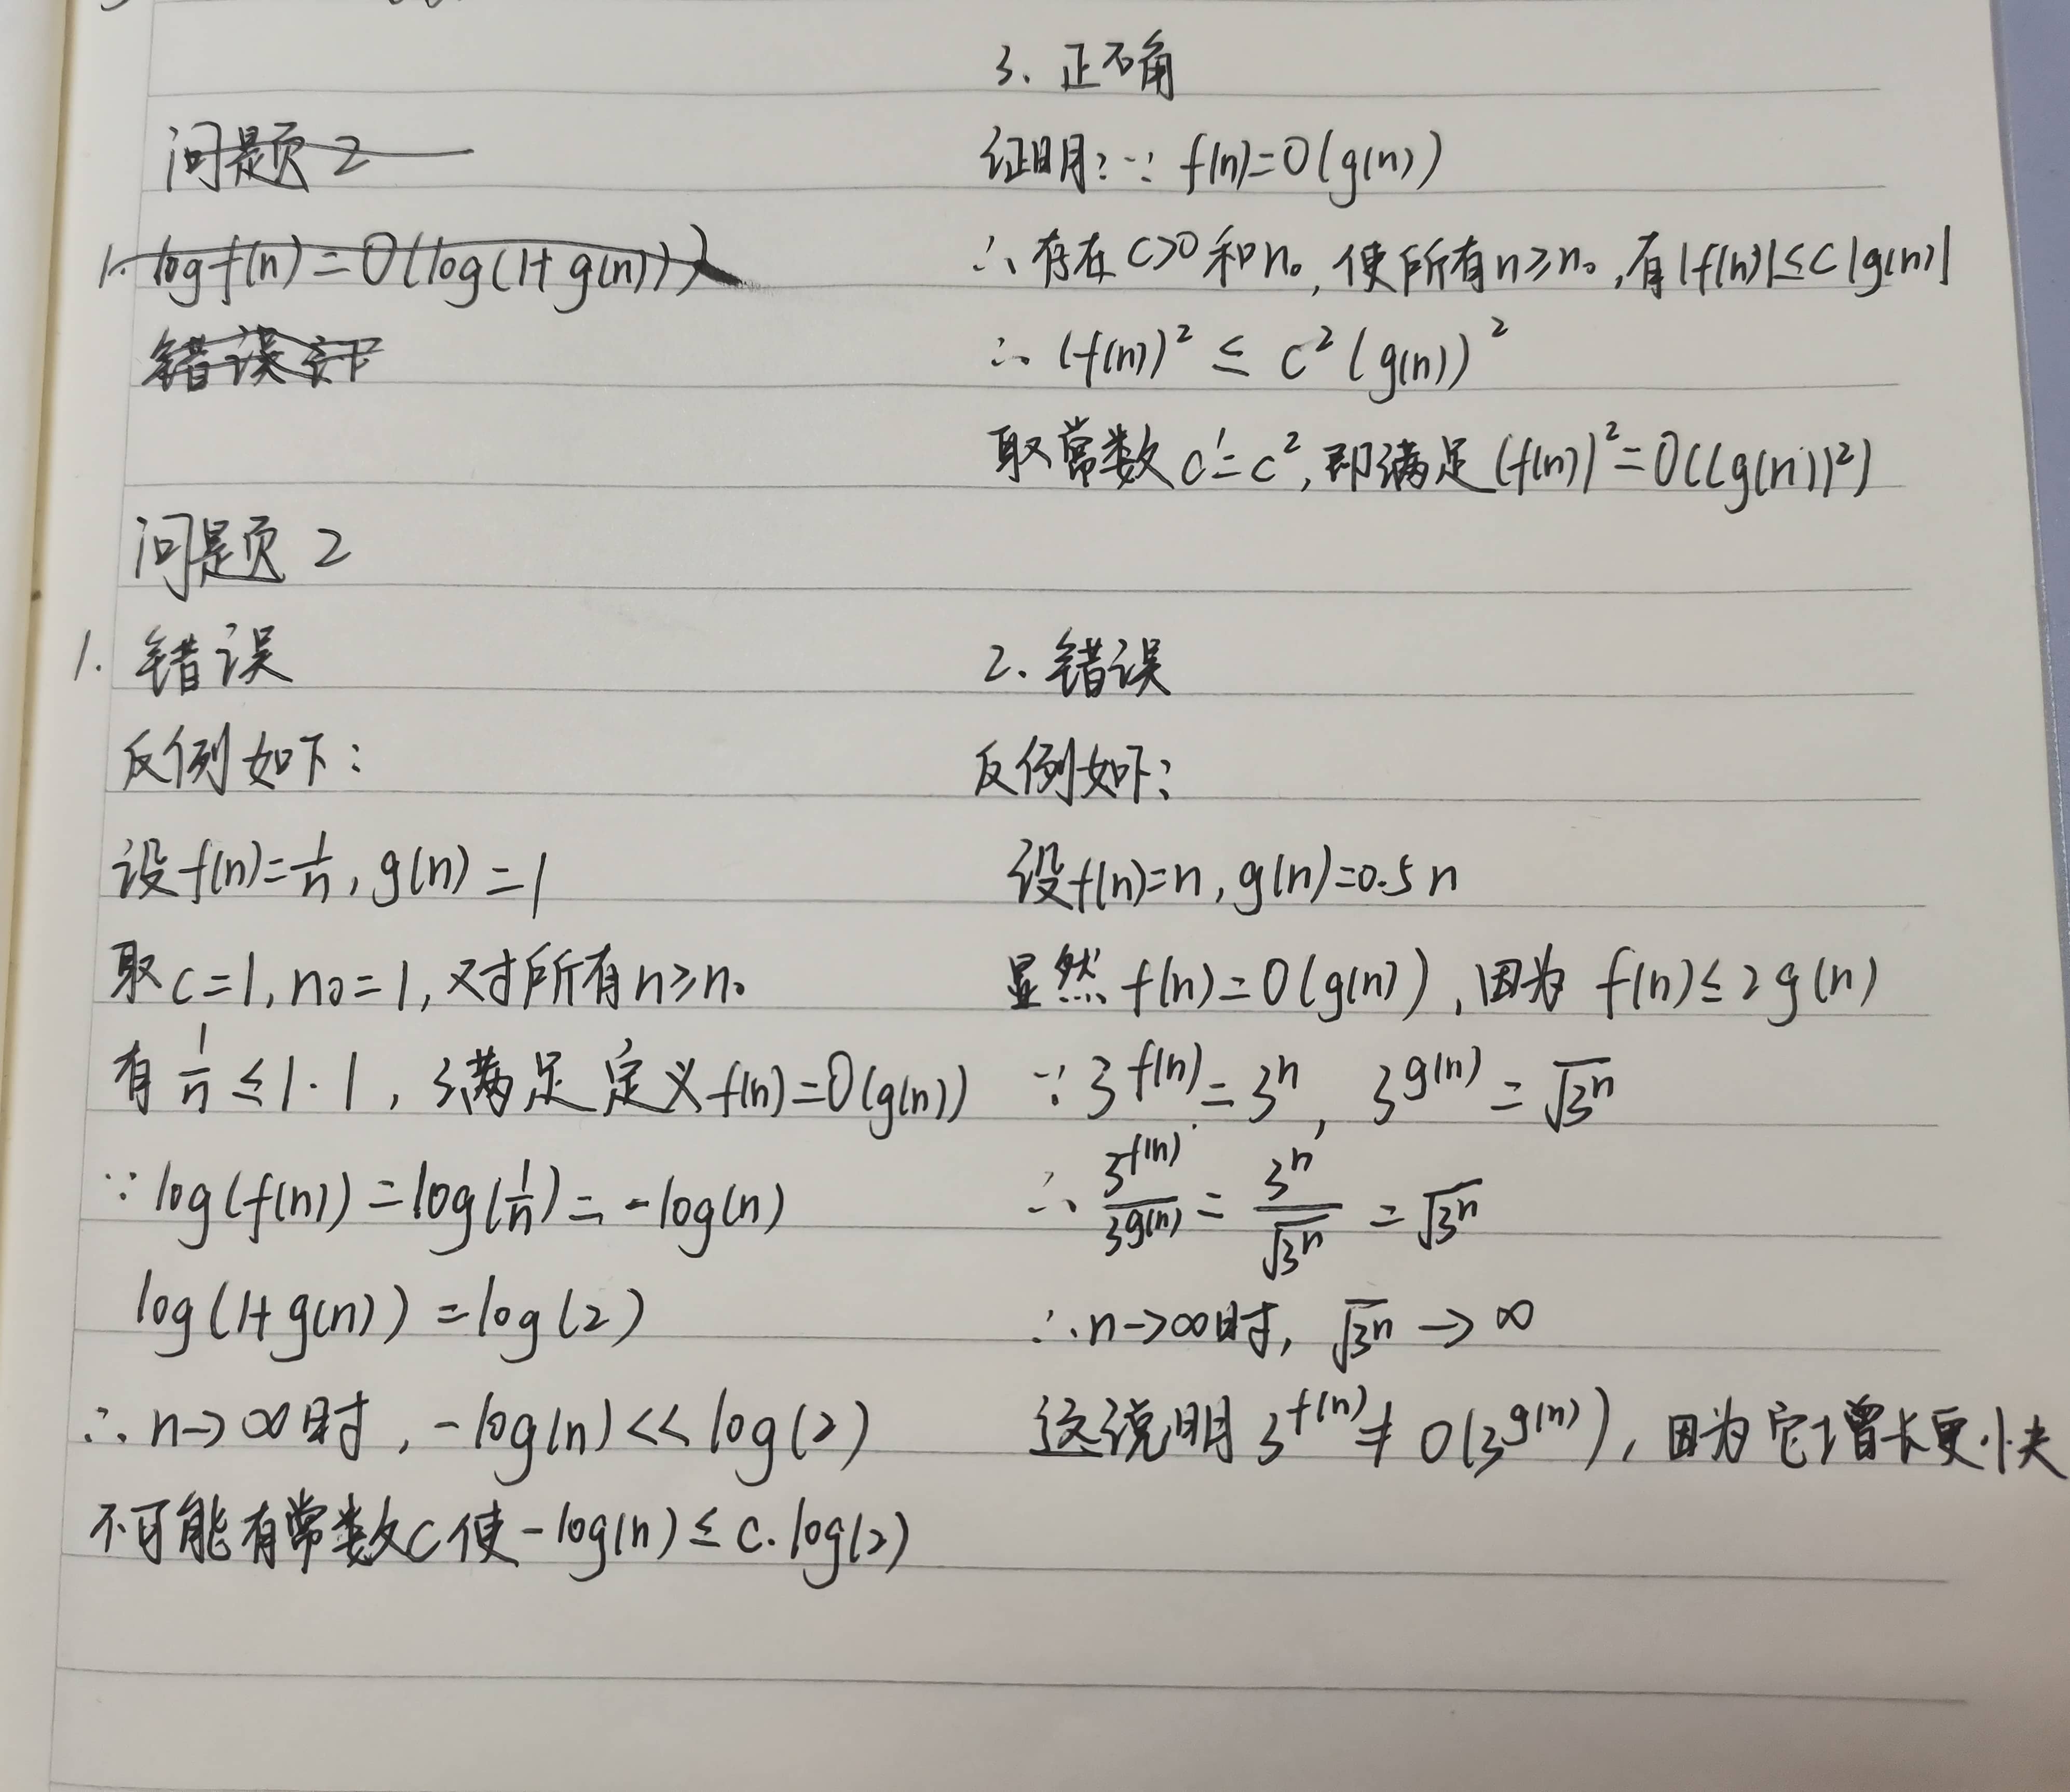 问题2
1. log f(n) = O(log(1+g(n)))
错误 如下
问题 2
1. 错误
反例如下：
设f(n)=1/n, g(n)=1
取c=1, n₀=1, 对所有n≥n₀
有 1/n ≤ 1·1, 满足定义f(n)=O(g(n))
∵ log(f(n))=log(1/n)=-log(n)
log(1+g(n))=log(2)
∴ n→∞时, -log(n)<<log(2)
不可能有常数c使-log(n)≤c·log(2)
3. 正确
证明：∵ f(n)=O(g(n))
∴ 存在c>0和n₀, 使所有n≥n₀, 有|f(n)|≤c|g(n)|
∴ (f(n))² ≤ c²(g(n))²
取常数c'=c², 即满足(f(n))²=O((g(n))²)
2. 错误
反例如下：
设f(n)=n, g(n)=0.5n
显然f(n)=O(g(n)), 因为 f(n)≤2g(n)
∵ 3^f(n)=3^n, 3^g(n)=√3^n
∴ 3^f(n)/3^g(n) = 3^n/√3^n = √3^n
∴ n→∞时, √3^n→∞
这说明3^f(n)≠O(3^g(n)), 因为它增长更快